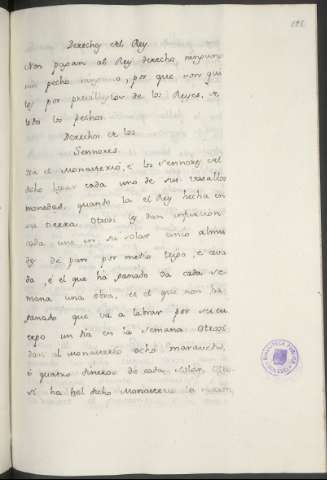 Derechos del Rey.
Non pagan al Rey derecho, ninguno
nin pecho ninguno, por que son qui
tos por previllejos de los Reyes, de
todos los pechos.
Derechos de los
Sennores.
Ha el Monasterio, e los Sennores del
dcho lugar cada uno de sus vasallos
monedas, quando las el Rey hecha en
su tierra. Otrosi les dan infurcion
cada uno en su solar cinco almu
des de pan por medio trigo, e ceva
da, e el que ha ganado da cada se
mana una obra, e el que non ha
ganado que va a labrar por su cu
erpo un dia en la semana. Otrosi
dan al monasterio ocho maravedis,
e quatro dineros de cada solar. Otro
si ha del dcho Monasterio la